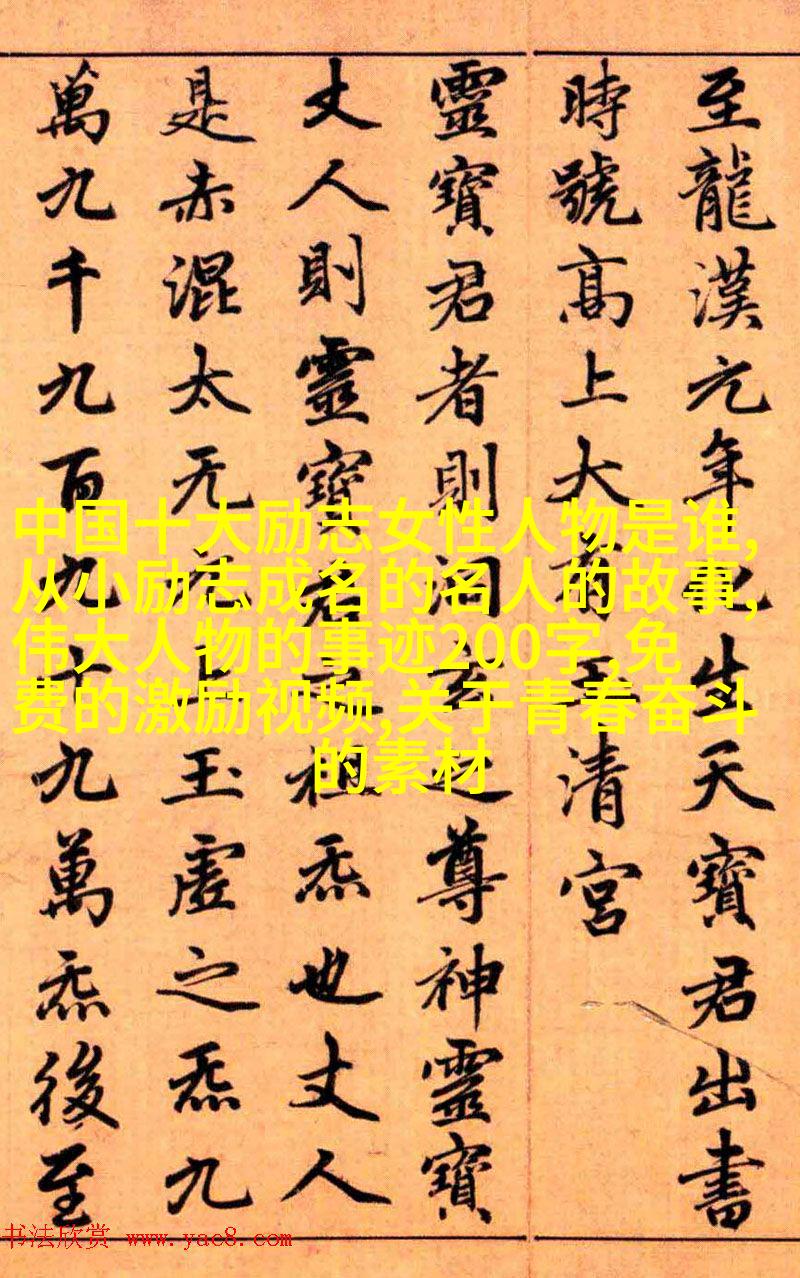 至龍漢元年化生天寶君出書
時號高上大有玉清宮
靈寶君者則洞玄之尊神靈寶
丈人則靈寶君之祖炁也丈人
是赤混太无元上玉虛之炁九
萬九千九百九十九萬炁後至
中国十大励志女性人物是谁,
从小励志成名的名人的故事,
伟大人物的事迹200字,免
费的激励视频,关于青春奋斗
的素材
书法欣赏 www.yac8.com